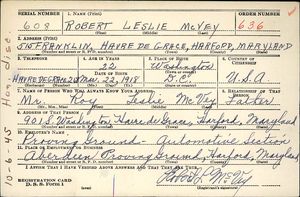 SERIAL NUMBER 1. NAME (Print) ORDER NUMBER
608 ROBERT LESLIE McVEY 636
(First) (Middle) (Last)
2. ADDRESS (Print)
515 FRANKLIN, HAVRE DE GRACE, HARFORD, MARYLAND
3. TELEPHONE 4. AGE IN YEARS 5. PLACE OF BIRTH 6. COUNTRY OF CITIZENSHIP
22 Washington
DATE OF BIRTH
HAVRE DE GRACE MAY 22, 1918 D.C. U.S.A.
7. NAME OF PERSON WHO WILL ALWAYS KNOW YOUR ADDRESS 8. RELATIONSHIP OF THAT PERSON
Mr. Roy Leslie McVey Father
9. ADDRESS OF THAT PERSON
901 S. Washington, Havre de Grace, Harford, Maryland
10. EMPLOYER'S NAME
Proving Ground - Automotive Section
11. PLACE OF EMPLOYMENT OR BUSINESS
Aberdeen Proving Ground, Harford, Maryland
I AFFIRM THAT I HAVE VERIFIED ABOVE ANSWERS AND THAT THEY ARE TRUE.
REGISTRATION CARD
D. S. S. Form 1
Robert L. McVey
10-6-45 Hon disc.